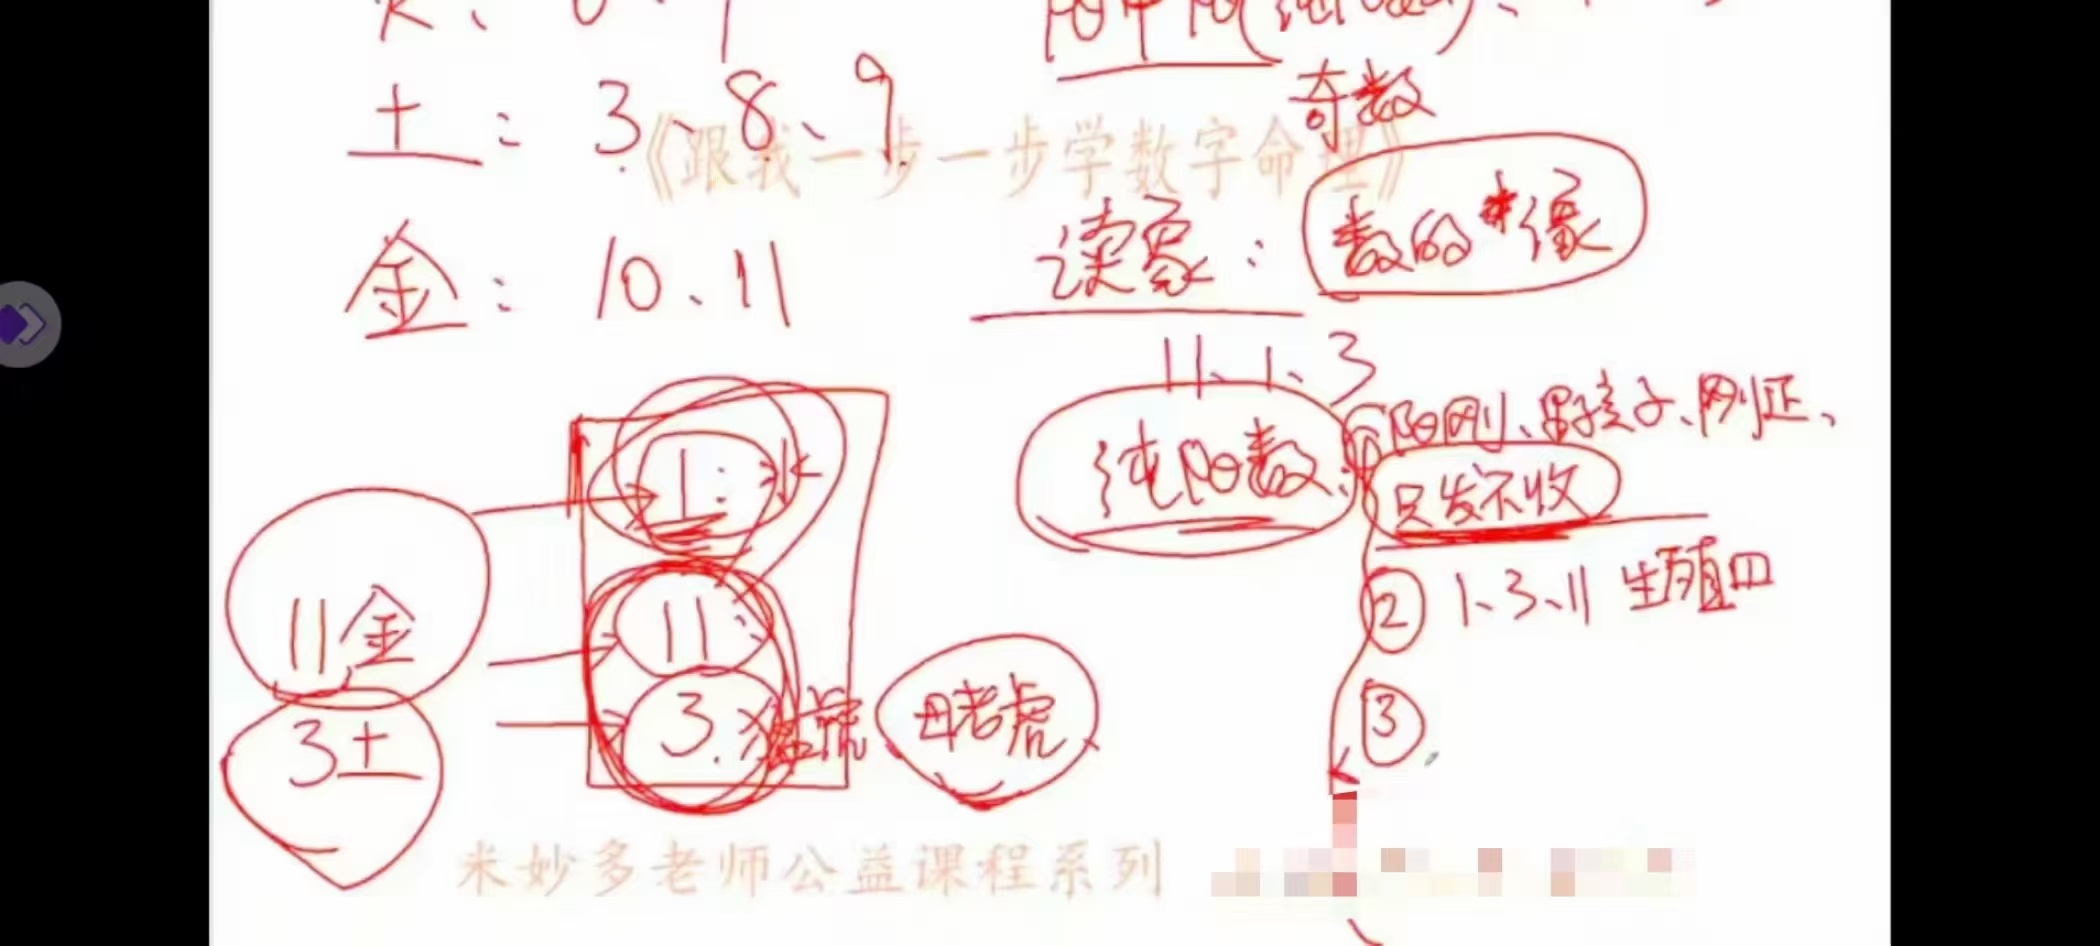 土：3、8、9
奇数
《跟我一步一步学数字命理》
金：10、11
读象：数的像
11、1、3
纯阳数：①阳刚、男孩子、刚正、
只发不收
②1、3、11 生殖口
③
1：水
11：
11金
3土
3.猛虎
母老虎
米妙多老师公益课程系列